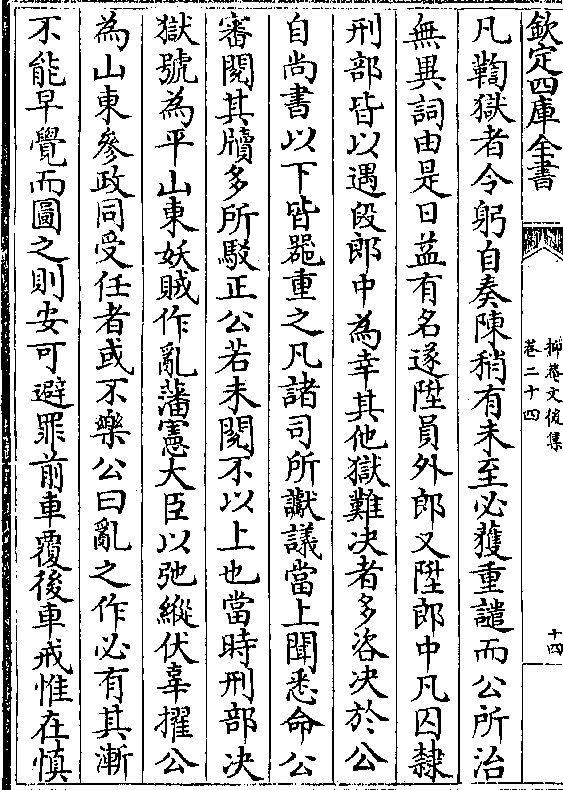 欽定四庫全書
抑菴文後集
卷二十四
十四
凡鞫獄者令躬自奏陳稍有未至必獲重譴而公所治
無異詞由是日益有名遂陞員外郎又陞郎中凡囚隸
刑部皆以遇段郎中為幸其他獄難決者多咨决於公
自尚書以下皆噐重之凡諸司所讞議當上聞悉命公
審閱其牘多所駁正公若未閱不以上也當時刑部决
獄號為平山東妖賊作亂藩憲大臣以弛縱伏辜擢公
為山東參政同受任者或不樂公曰亂之作必有其漸
不能早覺而圖之則安可避罪前車覆後車戒惟在慎